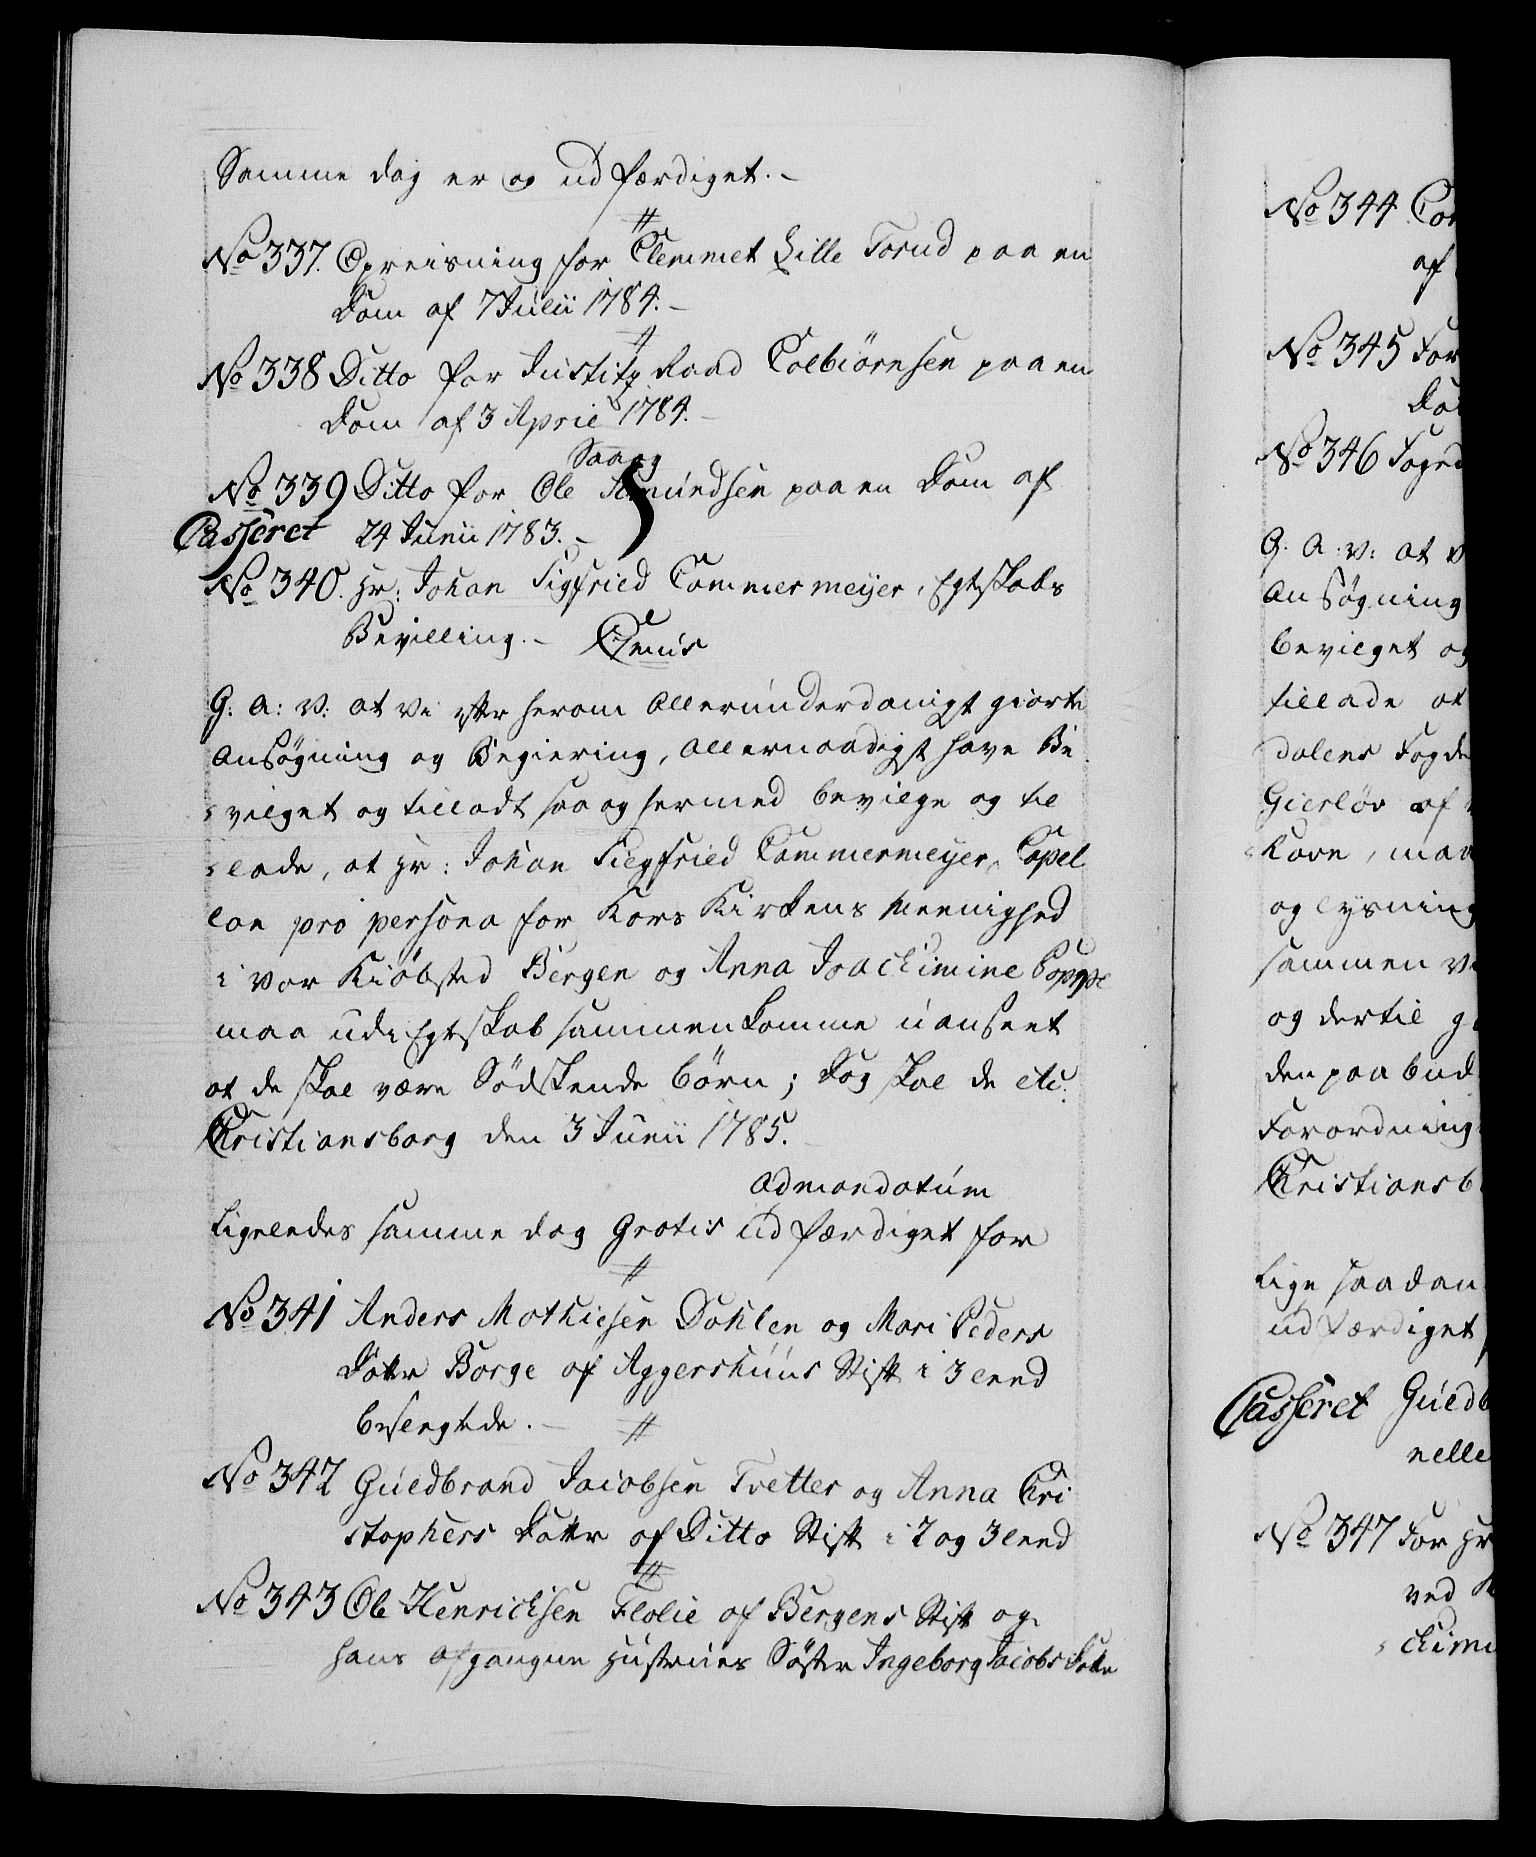 Samme dag er og udfærdiget. -
No 337. Opreisning for Clemmet Lille Forud paa en
Dom af 7 Julii 1784. -
No 338 Ditto for Justitz Raad Colbiörnsen paa en
Dom af 3 April 1784. -
Saag
No 339 Ditto for Ole Amundsen paa en Dom af
Casseret 24 Junii 1783. -
No 340. Hr: Johan Sigfried Cammermeyer, Egtskabs
Bevilling. - Qvenis
G. A: V: at vi efter herom allerunderdanigst giorte
Ansøgning og Begiering, allernaadigst have Be
vilget og tilladt saa og hermed bevilge og til
lade, at Hr: Johan Siegfried Cammermeyer, Capel
lan pro persona for Kors Kirkens Meenighed
i vor Kiöbsted Bergen og Anna Joachimine Poppe
maa udi Egtskab sammenkomme uanseet
at de skal være Södskende börn; dog skal de etc:
Christiansborg den 3 Junii 1785.
Ad mandatum
Ligeledes samme dag Gratis udfærdiget for
No 341 Anders Mathiesen Dahlen og Mari Peders
Datter Borge af Aggershuus Stift i 3 leed
besvogrede. -
No 342 Guldbrand Jacobsen Tretter og Anna Chri
stophers Datter af Ditto Stift i 2 og 3 leed
No 343 Ole Henrichsen Flolie af Bergens Stift og
hans afgangne Hustrues Søster Ingeborg Jacobs Datter
No 344 Con
af
No 345 For
Dom
No 346 Foged
G. A: V: at v
Ansøgning
bevilget og
tillade at
dalens Fogde
Gierlöv af
Kavn, maa
og lysning
sammen vi
og dertil g
den paabud
Forordning
Christiansb
Lige saadan
udfærdiget
Casseret Guldb
nelle
No 347 For Hr
ved
chimi